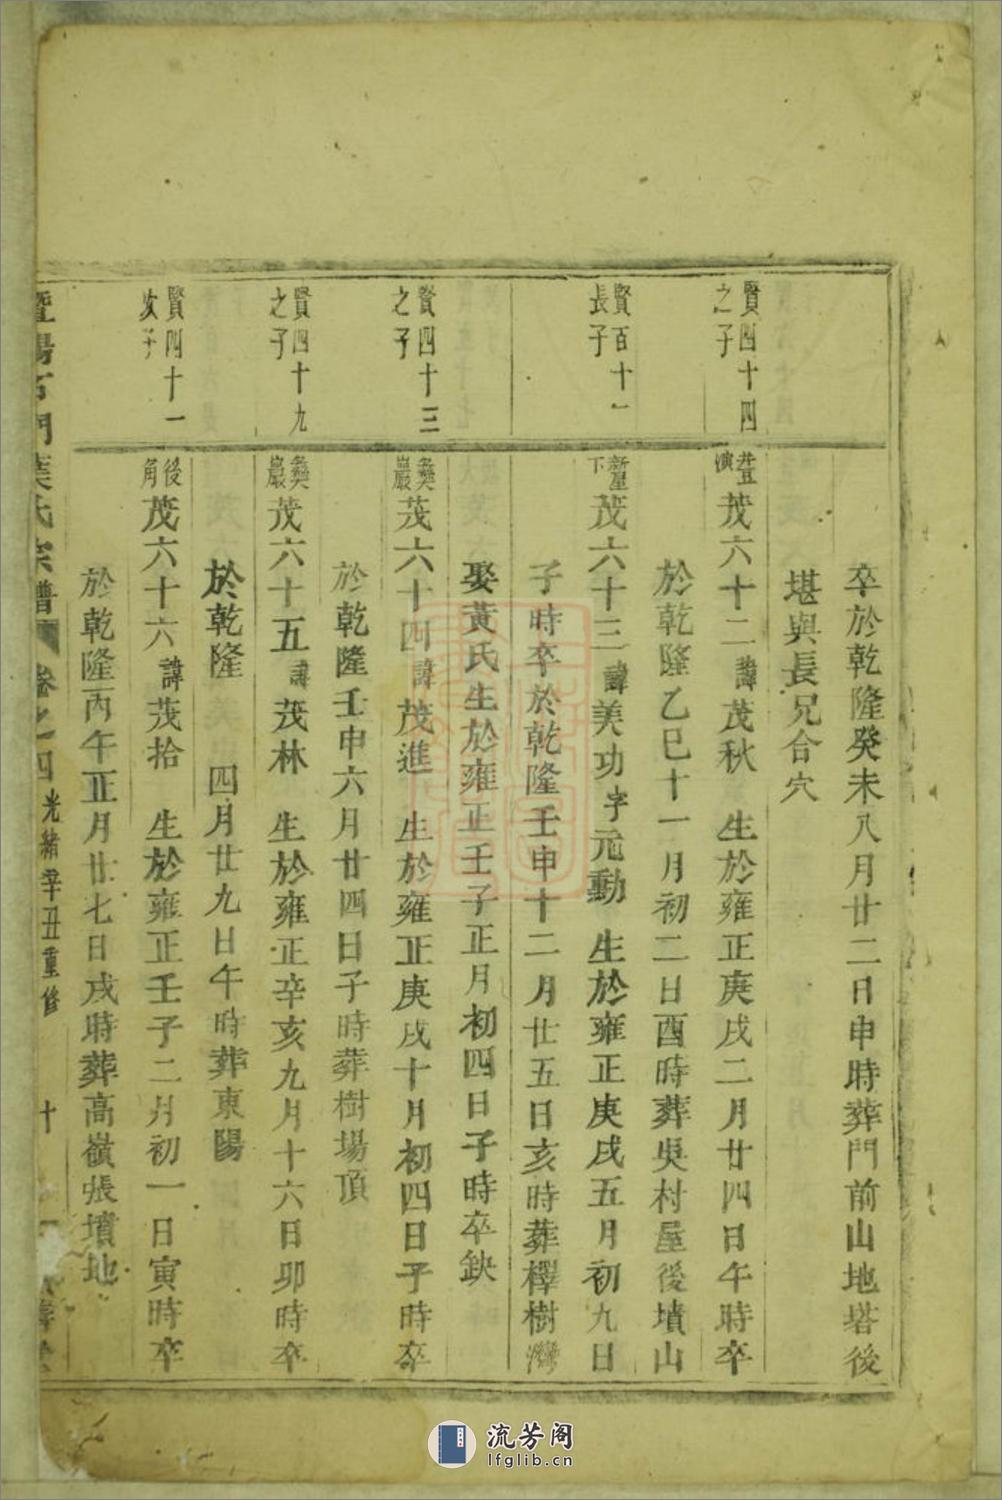 卒於乾隆癸未八月廿二日申時葬門前山地塔後
堪與長兄合穴
賢四十四
之子
茂六十二諱茂秋 生於雍正庚戌二月廿四日午時卒
於乾隆乙巳十一月初二日酉時葬吳村屋後墳山
賢百十一
長子
茂六十三諱美功字元動 生於雍正庚戌五月初九日
子時卒於乾隆壬申十二月廿五日亥時葬檡樹灣
娶黃氏生於雍正壬子正月初四日子時卒缺
賢四十三
之子
彝巖
茂六十四諱茂進 生於雍正庚戌十月初四日子時卒
於乾隆壬申六月廿四日子時葬樹場頂
賢四十九
之子
彝巖
茂六十五諱茂林 生於雍正辛亥九月十六日卯時卒
於乾隆 四月廿九日午時葬東陽
賢四十一
次子
後角
茂六十六諱茂拾 生於雍正壬子二月初一日寅時卒
於乾隆丙午正月廿七日戌時葬高嶺張墳地
暨陽石門葉氏宗譜 卷之四 光緒辛丑重修 十
流芳阁
lfglib.cn